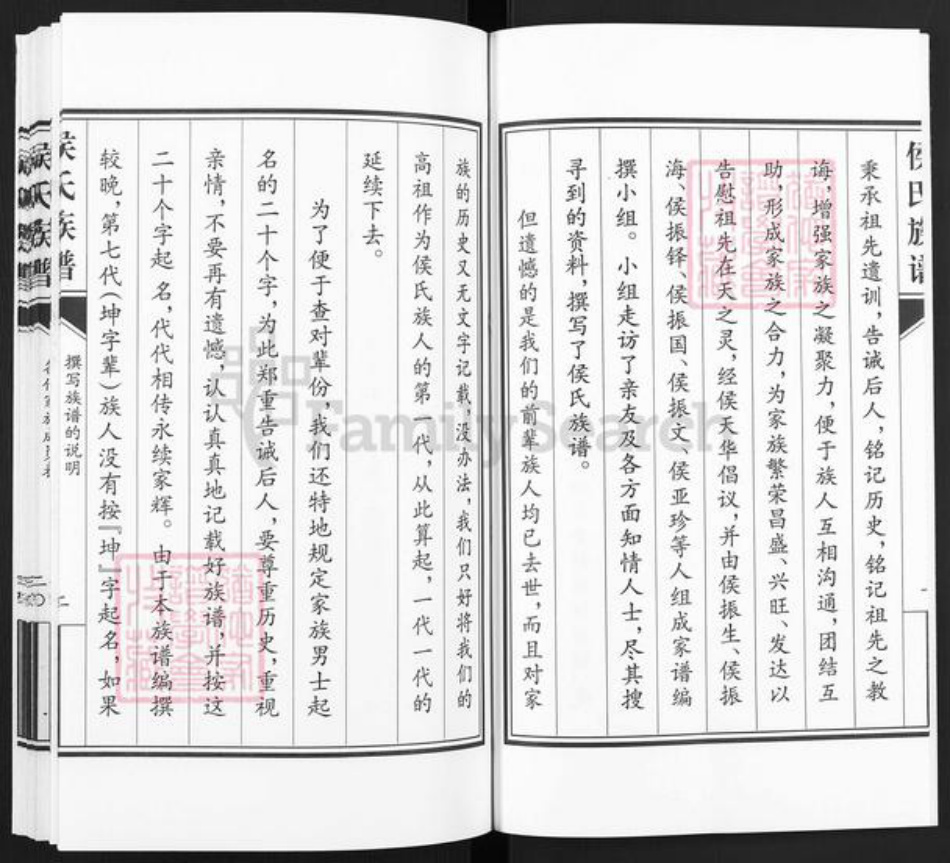 侯氏族谱
秉承祖先遗训,告诫后人,铭记历史,铭记祖先之教
诲,增强家族之凝聚力,便于族人互相沟通,团结互
助,形成家族之合力,为家族繁荣昌盛、兴旺、发达以
告慰祖先在天之灵,经侯天华倡议,并由侯振生、侯振
海、侯振铎、侯振国、侯振文、侯亚珍等人组成家谱编
撰小组。小组走访了亲友及各方面知情人士,尽其搜
寻到的资料,撰写了侯氏族谱。
但遗憾的是我们的前辈族人均已去世,而且对家
族的历史又无文字记载,没办法,我们只好将我们的
高祖作为侯氏族人的第一代,从此算起,一代一代的
延续下去。
为了便于查对辈份,我们还特地规定家族男士起
名的二十个字,为此郑重告诫后人,要尊重历史,重视
亲情,不要再有遗憾,认认真真地记载好族谱,并按这
二十个字起名,代代相传永续家辉。由于本族谱编撰
较晚,第七代(坤字辈)族人没有按『坤』字起名,如果
侯氏族谱
撰写族谱的说明
FamilySearch